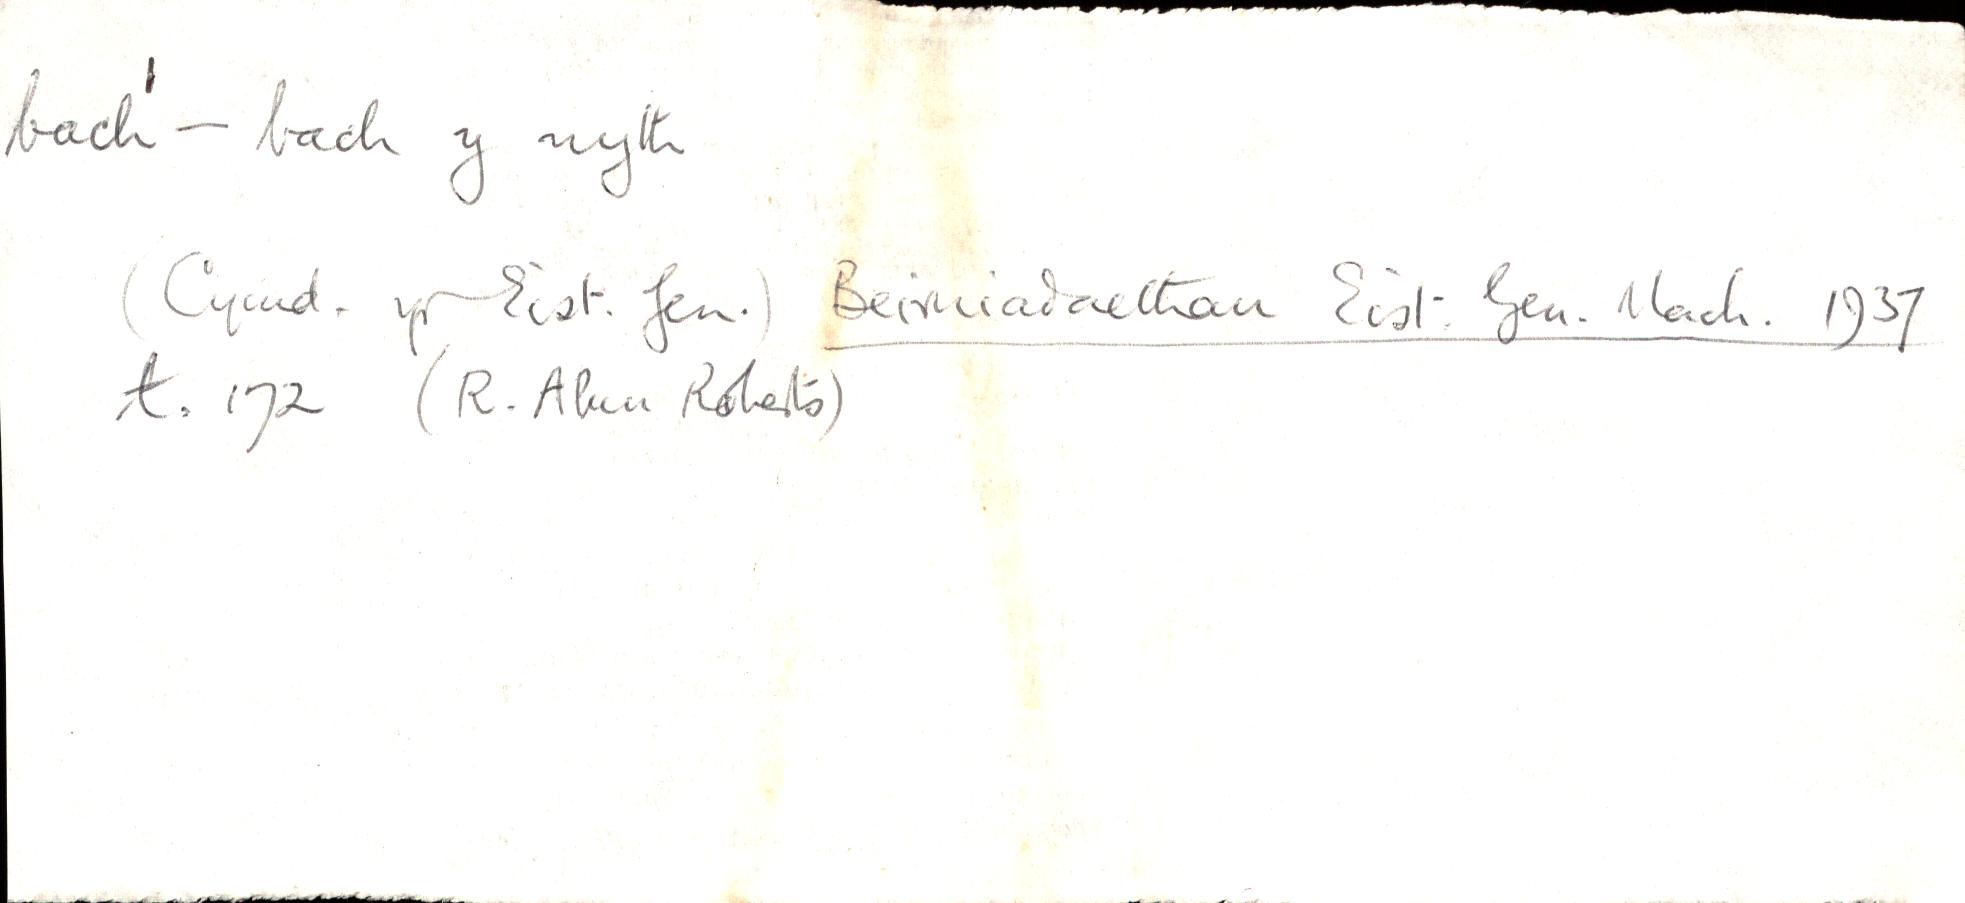 bach¹ – bach y nyth
(Cymd. yr Eist. Gen.) Beirniadaethau Eist. Gen. Mach. 1937
t. 172 (R. Alun Roberts)